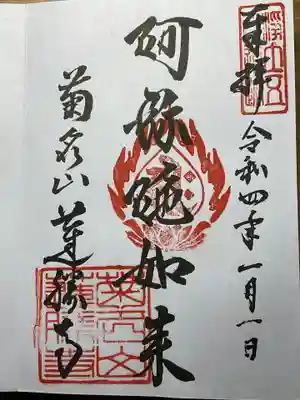 奉拝
令和四年一月一日
阿弥陀如来
菊名山 蓮勝寺